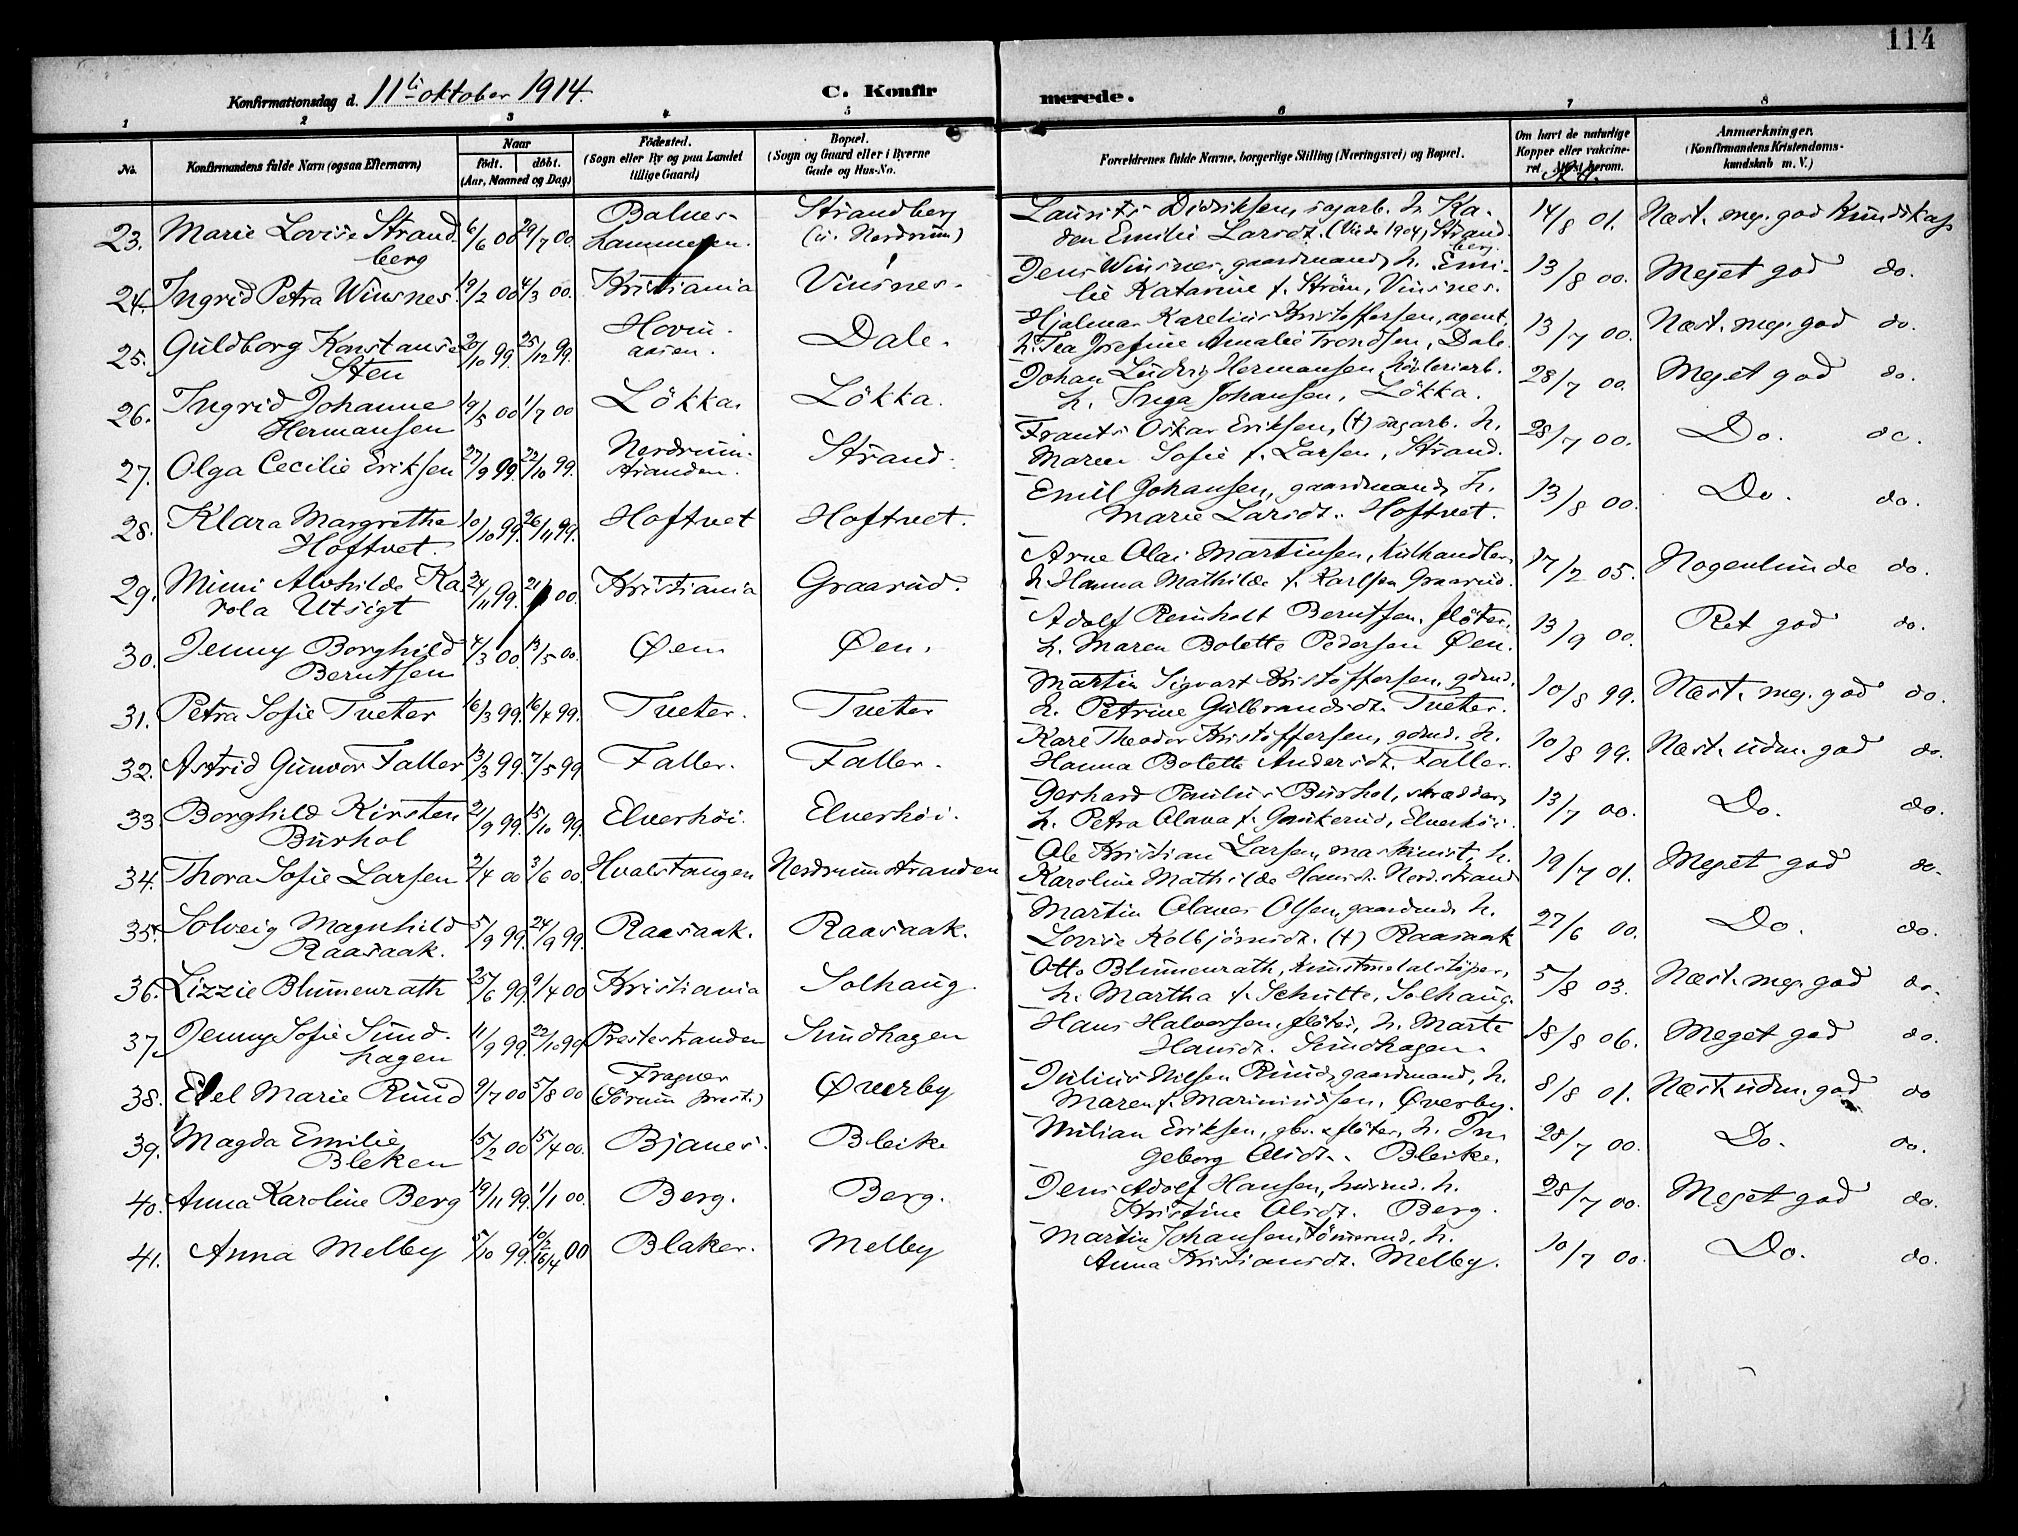 114
Konfirmationsdag d. 11te oktober 1914.
C. Konfirmerede.
1 2 3 4 5 6 7 8
No.
Konfirmandens fulde Navn (ogsaa Efternavn)
Naar
født. døbt.
(Aar, Maaned og Dag)
Fødested.
(Sogn eller By og paa Landet
tillige Gaard)
Bopæl.
(Sogn og Gaard eller i Byerne
Gade og Hus-No.
Forældrenes fulde Navne, borgerlige Stilling (Næringsvei) og Bopæl.
Om havt de naturlige
Kopper eller vakcineret. Attest herom.
Anmærkninger.
(Konfirmandens Kristendomskundskab m. V.)
23. Marie Lovise Strand- 6/6 00 29/7 00 Balnes- Strandberg Laurits Didriksen, sagarb. h. Ka- 14/8 01. Næst. meg. god Kundskap
berg Lammeren. (u. Nordrum) den Emilie Larsdt. (Vivde 1904) Strandberg.
24. Ingrid Petra Winsnes. 19/2 00 4/3 00. Kristiania Vinsnes. Jens Winsnes, gaardmand, h. Emi- 13/8 00. Meget god do.
lie Katarine f. Strøm, Vinsnes.
25. Guldborg Konstanse 20/10 99. 25/12 99. Hovin- Dale. Hjalmar Karelius Kristoffersen, agent, 13/7 00. Næst. meg. god do.
Sten aasen. h. Tea Josefine Amalie Trondsen, Dale.
26. Ingrid Johanne 19/5 00 1/7 00 Løkka. Løkka. Johan Ludvig Hermansen, høvleriarb. 28/7 00. Meget god do.
Hermansen h. Inga Johansen, Løkka.
27. Olga Cecilie Eriksen 27/9 99. 22/10 99. Nordrum- Strand. Frants Oskar Eriksen, (†) sagarb. h. 28/7 00. Do. do.
stranden. Maren Sofie f. Larsen, Strand.
28. Klara Margrethe 10/10 99. 26/11 99. Hoftvet Hoftvet. Emil Johansen, gaardmand, h. 13/8 00. Do. do.
Hoftvet. Marie Larsdt. Hoftvet.
29. Mimi Alvhilde Ka- 24/11 99. 21/ 00. Kristiania Graarud. Arne Olai Martinsen, kulhandler, 17/2 05. Nogenlunde do.
rola Utsigt h. Hanna Mathilde f. Karlsen Graarud.
30. Jenny Borghild 4/3 00. 13/5 00. Øen Øen. Adolf Reinholt Berntsen, fløter, 13/9 00. Ret god do.
Berntsen h. Maren Bolette Pedersen Øen.
31. Petra Sofie Tveter 16/3 99. 16/4 99. Tveter. Tveter Martin Sigvart Kristoffersen, gdmd. 10/8 99. Næst. meg. god do.
h. Petrine Gulbrandsdt. Tveter.
32. Astrid Gunvor Faller 13/3 99. 7/5 99 Faller. Faller. Karl Theodor Kristoffersen, gdmd. h. 10/8 99. Næst. udm. god do.
Hanna Bolette Andersdt. Faller.
33. Borghild Kirsten 21/9 99. 15/10 99. Elverhøi. Elverhøi. Gerhard Paulius Burhol, skrædder, 13/7 00. Do. do.
Burhol h. Petra Olava f. Gaukerud, Elverhøi.
34. Thora Sofie Larsen 2/4 00 3/6 00. Hvalstangen Nordrumstranden Ole Kristian Larsen, maskinist, h. 19/7 01. Meget god do.
Karoline Mathilde Hansdt. Nord.strand
35. Solveig Magnhild 5/9 99. 24/9 99. Raasaak. Raasaak. Martin Olaves Olsen, gaardmd. h. 27/6 00. Do. do.
Raasaak. Lovise Kolbjørnsdt. (†) Raasaak
36. Lizzie Blumenrath 25/6 99. 9/4 00 Kristiania Solhaug. Otto Blumenrath, kunstmetalstøper, 5/8 03. Næst. meg. god do.
h. Martha f. Schutte, Solhaug.
37. Jenny Sofie Sund- 11/9 99. 22/10 99 Prestestranden Sundhagen Hans Halvorsen, fløter, h. Marte 18/8 06. Meget god do.
hagen Hansdt. Sundhagen.
38. Edel Marie Ruud 9/7 00 5/8 00 Fragner Øverby Julius Nilsen Ruud, gaardmand, h. 8/8 01. Næst. udm. god do
(Sørum prest.) Maren f. Mariniusen, Øverby.
39. Magda Emilie 15/2 00 15/4 00. Bjanes. Bleike Milian Eriksen, gbr. & fløter, h. In- 28/7 00. Do. do.
Bleken geborg Olsdt. Bleike.
40. Anna Karoline Berg 19/11 99. 1/1 00. Berg. Berg. Jens Adolf Hansen, husmd. h. 28/7 00. Meget god do.
Kristine Olsdt. Berg.
41. Anna Melby 5/10 99. 10/2 16/4 00 Blaker. Melby Martin Johansen, tømmermd. h. 10/7 00. Do. do.
Anna Kristiansdt. Melby.